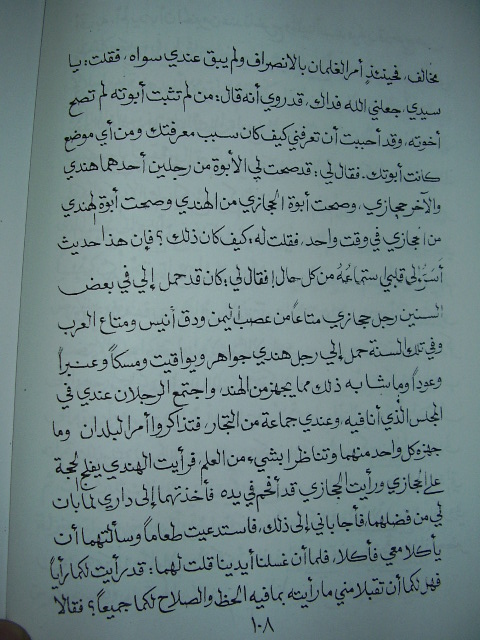 مخالف، فحينئذٍ أمر الغلمان بالانصراف ولم يبق عندي سواه، فقلت: يا
سيدي، جعلني الله فداك، قد روي أنه قال: من لم تثبت أبوته لم تصح
أخوته، وقد أحببت أن تعرفني كيف كان سبب معرفتك ومن أي موضع
كانت أبوتك. فقال لي: قد صحت لي الأبوة من رجلين أحدهما هندي
والآخر حجازي، وصحت أبوة الحجازي من الهندي وصحت أبوة الهندي
من الحجازي في وقت واحد، فقلت له: كيف كان ذلك؟ فإن هذا حديث
إلى قلبي ستماعه من كل حال! فقال لي: كان قد حمل إلي في بعض
السنين رجل حجازي متاعاً من عصب اليمن ودق أنيس ومتاع العرب
وفي تلك السنة حمل إلي رجل هندي جواهر ويواقيت ومسكاً وعنبراً
وعوداً وما شابه ذلك مما يجهز من الهند، واجتمع الرجلان عندي في
المجلس الذي أنا فيه، وعندي جماعة من التجار، فتذاكروا أمر البلدان وما
جهزه كل واحد منهما وتناظرا بشيء من العلم، فرأيت الهندي يفلح لحجة
على الحجازي ورأيت الحجازي قد أفحم في يده فأخذتهما إلى داري لما بان
لي من فضلهما، فأجاباني إلى ذلك، فاستدعيت طعاماً وسألتهما أن
يأكلا معي فأكلا، فلما أن غسلنا أيدينا قلت لهما: قد رأيت لكما رأياً
فهل لكما أن تقبلا مني ما رأيته بما فيه الحظ والصلاح لكما جميعاً؟ فقالا
١٠٨